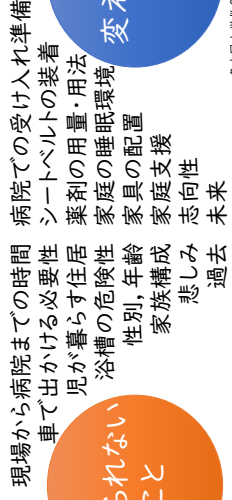 られない
こと
現場から病院までの時間
車で出かける必要性
児が暮らす住居
浴槽の危険性
性別, 年齢
家族構成
悲しみ
過去
変え
病院での受け入れ準備
シートベルトの装着
薬剤の用量・用法
家庭の睡眠環境
家具の配置
家庭支援
志向性
未来